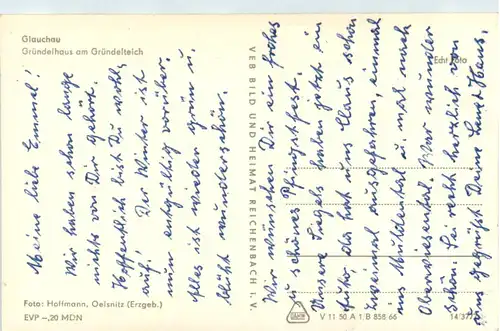 Glauchau
Gründelhaus am Gründelteich
Meine liebe Emmel!
Wir haben schon lange
nichts von Dir gehört.
Hoffentlich bist Du wohl
auf! Der Winter ist
nun entgültig vorüber.
Alles ist wieder grün u.
blüht wunderschön.
Foto: Hoffmann, Oelsnitz (Erzgeb.)
EVP -,20 MDN
VEB BILD UND HEIMAT REICHENBACH i. V.
Echt Foto
Wir wünschen Dir ein frohes
u. schönes Pfingstfest.
Unsere haben jetzt ein
Auto, da hat uns Claus schon
zweimal ausgefahren, einmal
ins Muldental u. mal nach
Oberwiesental. War wunder
schön. Sei recht herzlich von
uns gegrüßt Deine Hans,
V 11 50 A 1 B 858 66
14/377